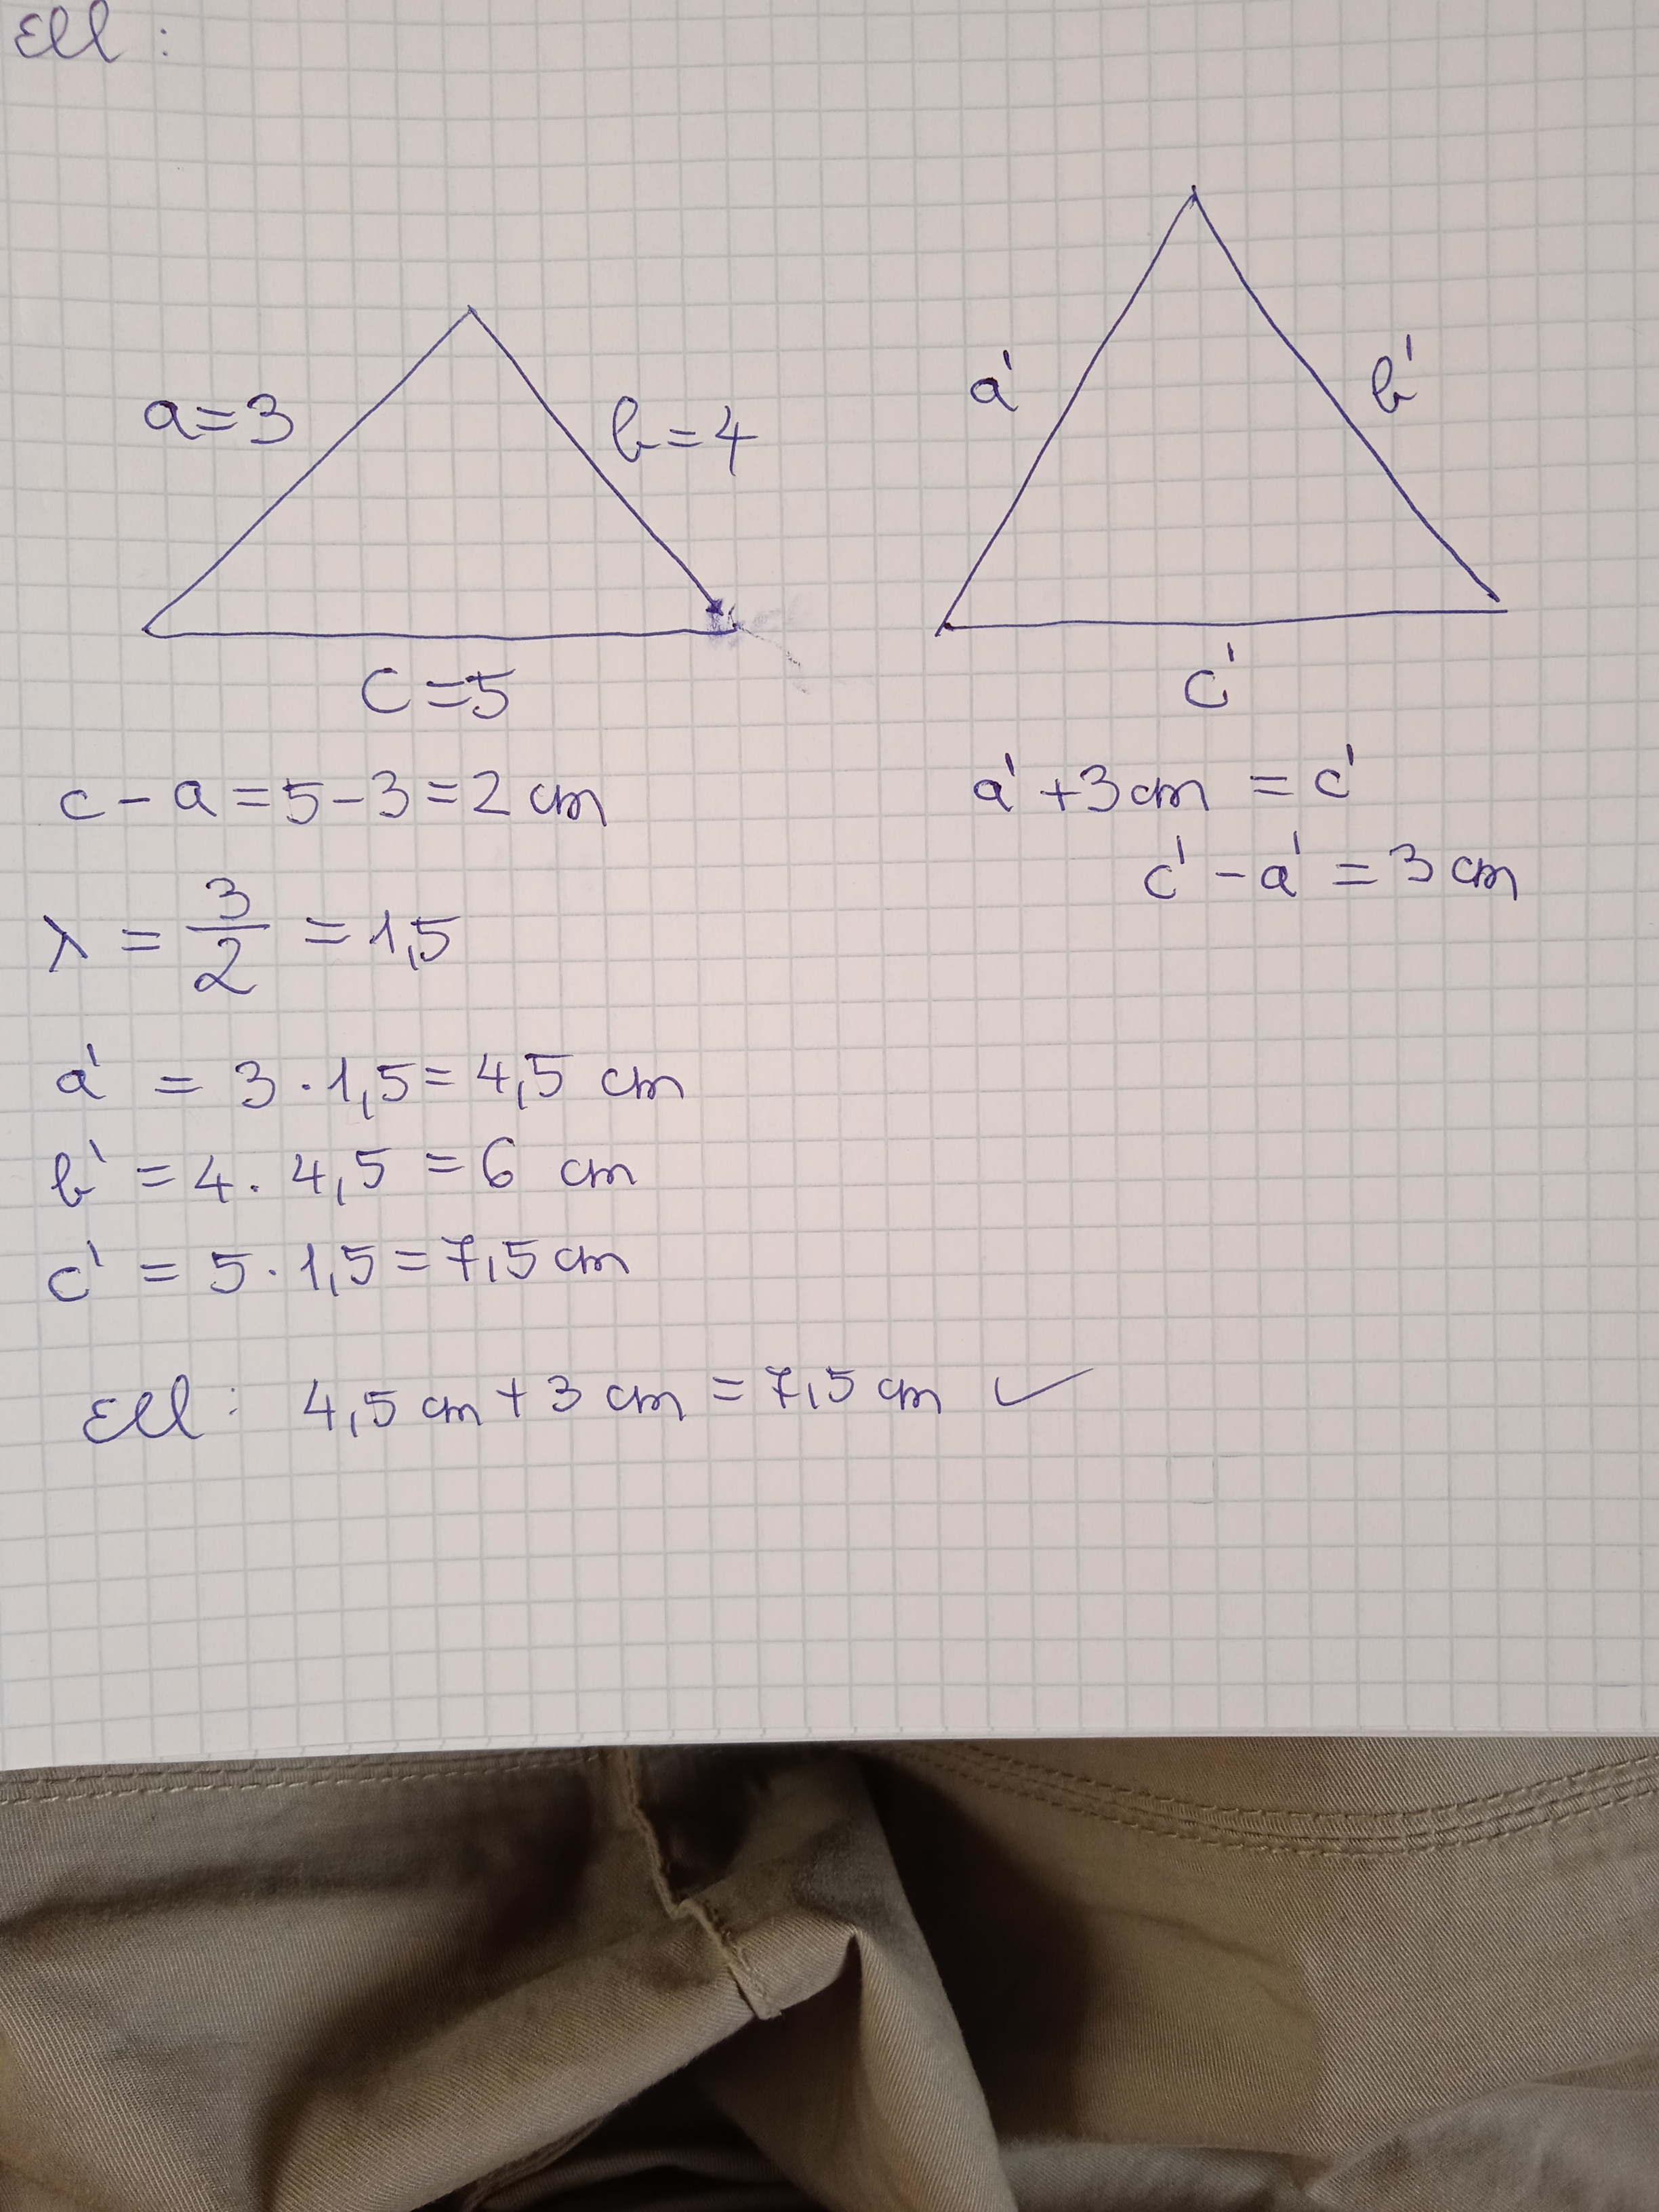 Ell :
a=3
b=4
c=5
a'
b'
c'
c - a = 5 - 3 = 2 cm
a' + 3 cm = c'
c' - a' = 3 cm
λ = 3/2 = 1,5
a' = 3 · 1,5 = 4,5 cm
b' = 4 · 4,5 = 6 cm
c' = 5 · 1,5 = 7,5 cm
Ell : 4,5 cm + 3 cm = 7,5 cm ✓